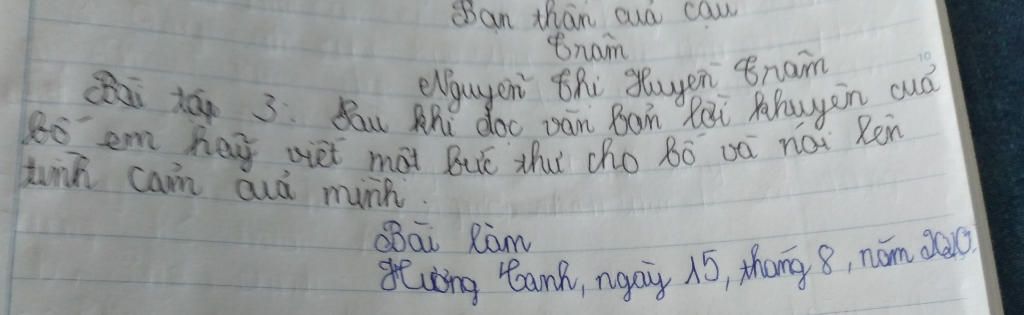 Bạn thân của cậu
Trâm
Nguyễn Thị Huyền Trâm
Bài tập 3: Sau khi đọc văn bản lời khuyên của
bố em hãy viết một bức thư cho bố và nói lên
tình cảm của mình.
Bài làm
Hương Canh, ngày 15, tháng 8, năm 2020.